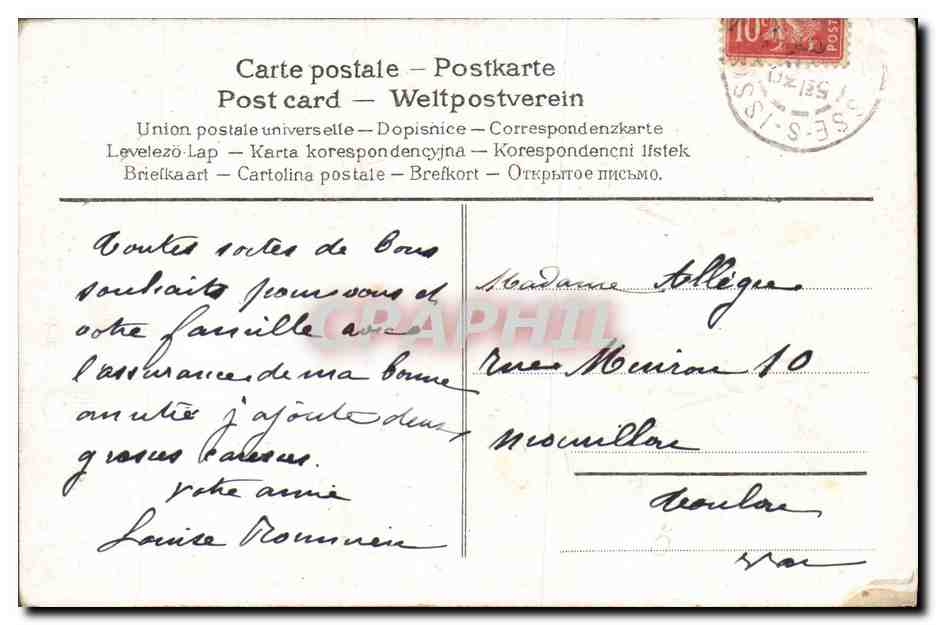 Carte postale – Postkarte
Post card – Weltpostverein
Union postale universelle – Dopisnice – Correspondenzkarte
Levelezö-Lap – Karta korespondencyjna – Korespondencni listek
Briefkaart – Cartolina postale – Brefkort – Открытое письмо.
10c
POST
SSE-S-IS
Toutes sortes de bons
souhaits pour vous et
votre famille avec
l'assurance de ma bonne
amitié j'ajoute deux
grosses caresses.
Votre amie
Louise
CPAPHIL
Madame Allègre
rue Muiron 10
Mourillon
Toulon
Var